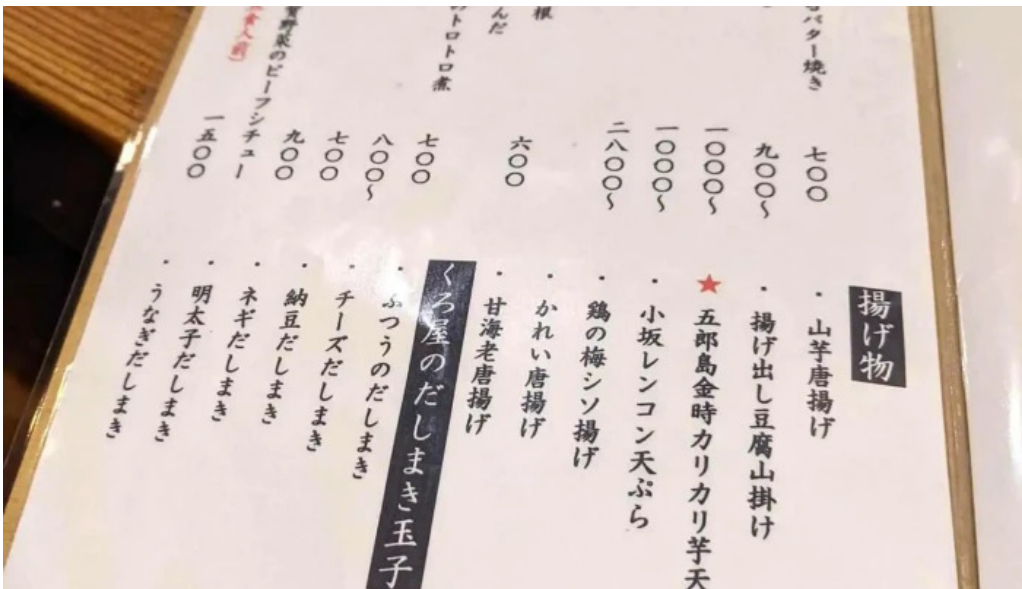 バター焼き
七〇〇
九〇〇~
一〇〇〇~
一〇〇〇~
二八〇〇~
根
六〇〇
んだ
トロトロ煮
七〇〇
八〇〇~
七〇〇
九〇〇
野菜のビーフシチュー
一五〇〇
食人前)
揚げ物
・山芋唐揚げ
・揚げ出し豆腐山掛け
★五郎島金時カリカリ芋天
・小坂レンコン天ぷら
・鶏の梅シソ揚げ
・かれい唐揚げ
・甘海老唐揚げ
くろ屋のだしまき玉子
・ふつうのだしまき
・チーズだしまき
・納豆だしまき
・ネギだしまき
・明太子だしまき
・うなぎだしまき